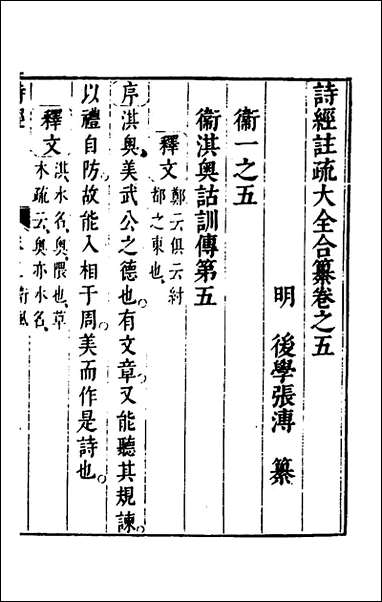 詩經註疏大全合纂卷之五
明　後學張溥　纂
衞一之五
衞淇奧詁訓傳第五
釋文　鄭云俱云紂
都之東也
序淇奧美武公之德也有文章又能聽其規諫
以禮自防故能入相于周美而作是詩也
釋文　淇水名奧隈也草
木疏云奧亦水名
詩經